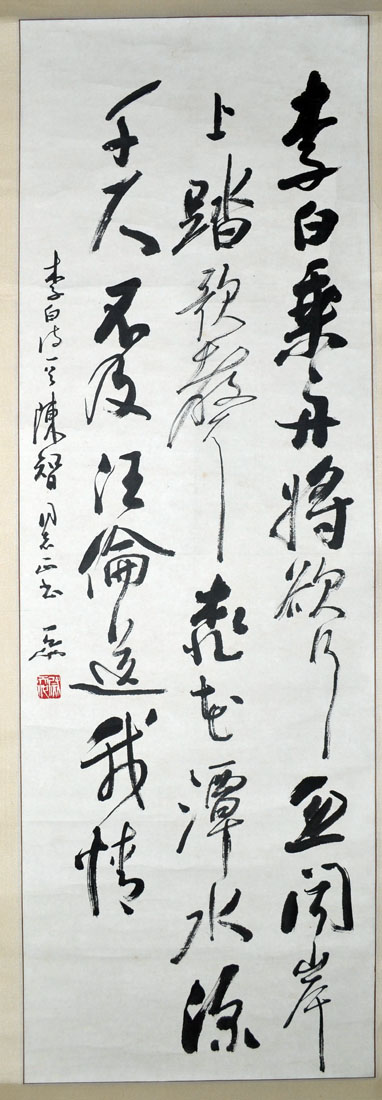 李白乘舟将欲行忽闻岸
上踏歌聲桃花潭水深
千尺不及汪倫送我情
李白诗一首陳智同志正书